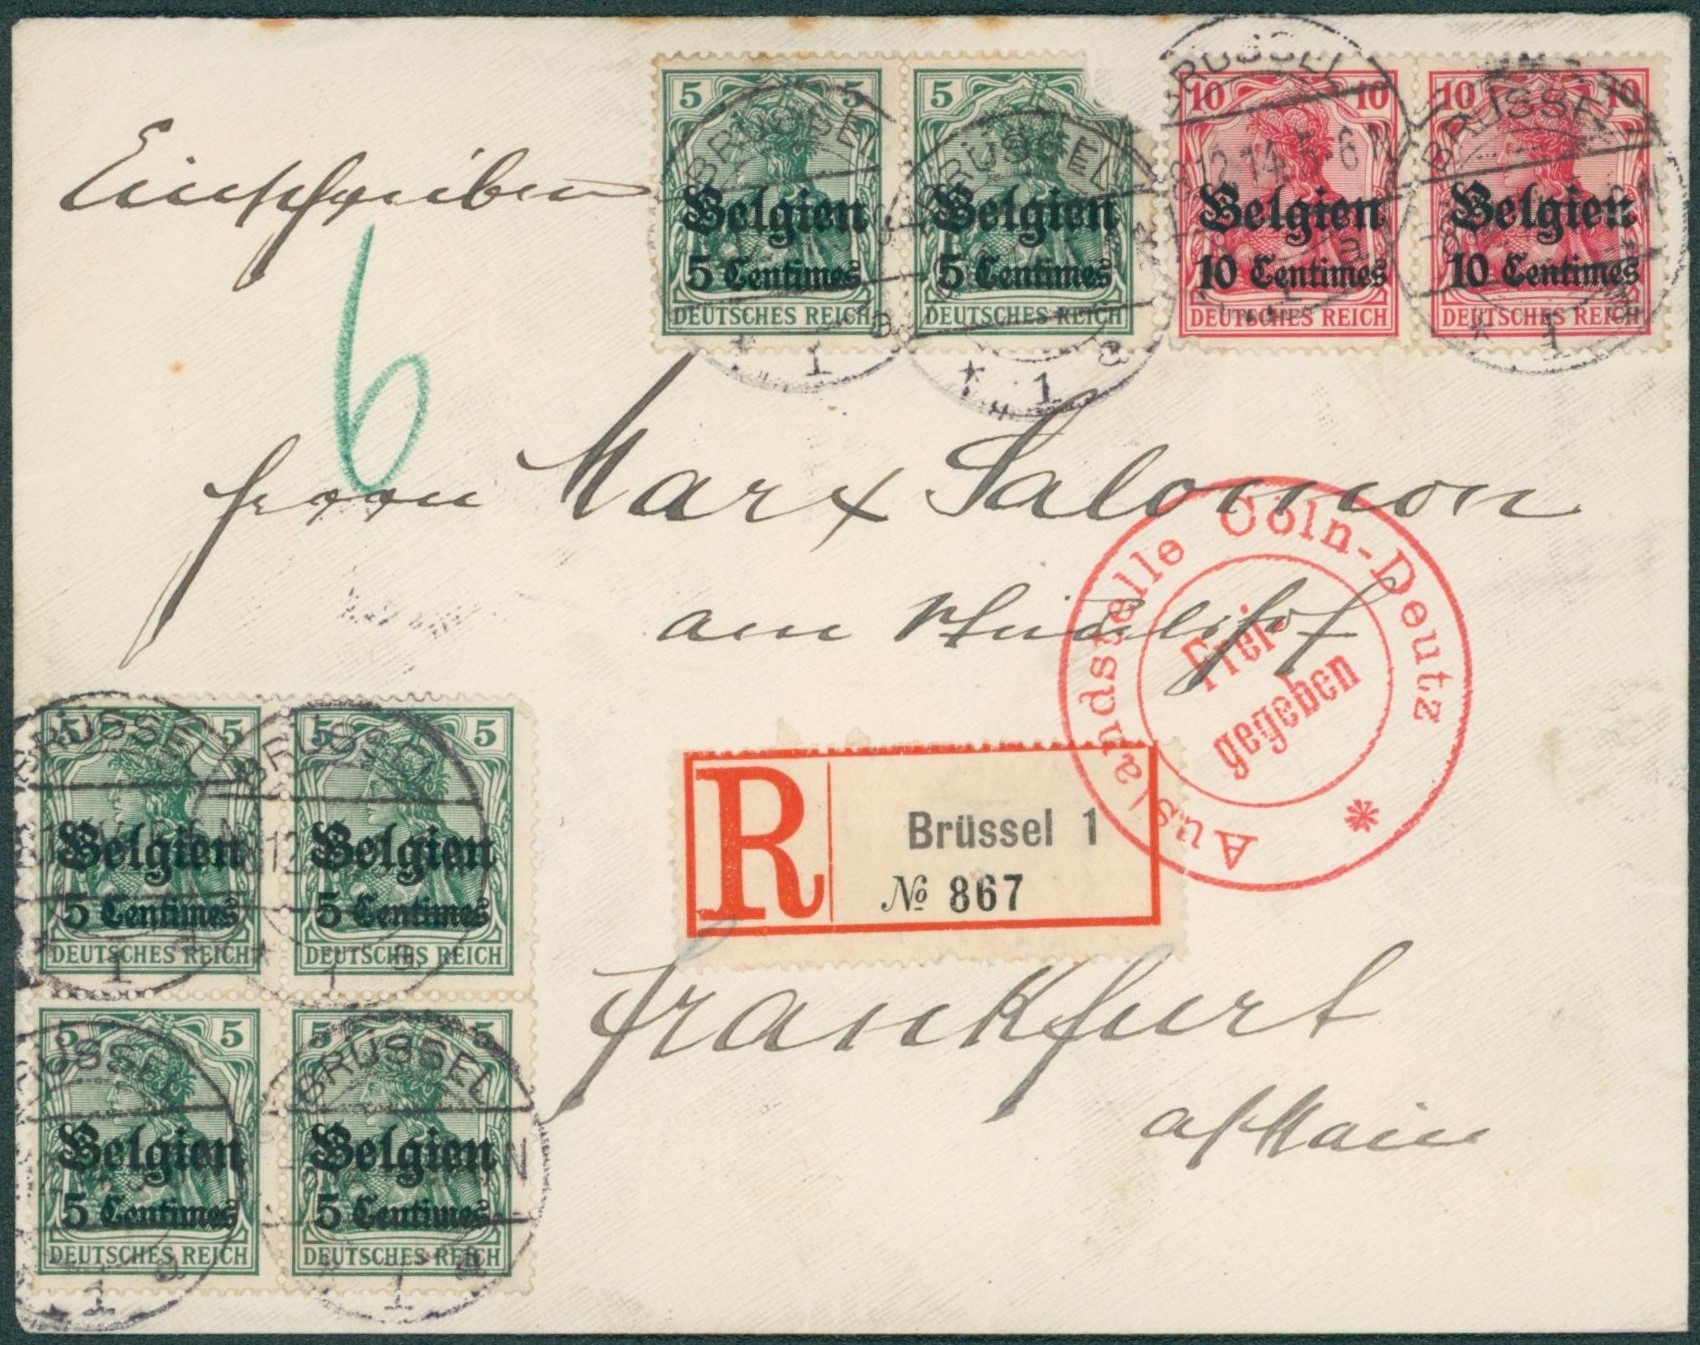 Einschreiben
6
5 5
Belgien
5 Centimes
DEUTSCHES REICH
5
Belgien
5 Centimes
DEUTSCHES REICH
10 10
Belgien
10 Centimes
DEUTSCHES REICH
10 10
Belgien
10 Centimes
DEUTSCHES REICH
BRÜSSEL
* 1 a
BRÜSSEL
* 1 a
BRÜSSEL
8.12.14.5-6N
BRÜSSEL
* 1
Marx Salomon
am
Auslandstelle Cöln-Deutz *
Frei-
gegeben
R
Brüssel 1
№ 867
Frankfurt
a/Main
5 5
Belgien
5 Centimes
DEUTSCHES REICH
5 5
Belgien
5 Centimes
DEUTSCHES REICH
5 5
Belgien
5 Centimes
DEUTSCHES REICH
5 5
Belgien
5 Centimes
DEUTSCHES REICH
BRÜSSEL
* 1
BRÜSSEL
* 1 a
BRÜSSEL
1 a
BRÜSSEL
1 a